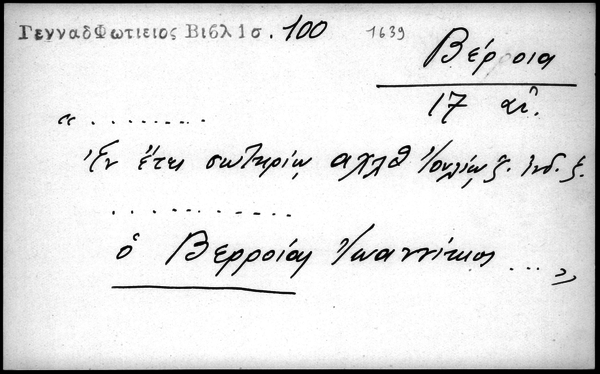 ΓενναδΦωτιειος Βιβλ 1σ. 100 1639
Βέρροια
17 αἰ.
“ . . . . . . . .
ἐν ἔτει σωτηρίῳ αχλθ Ἰουλίῳ ζ. ἰνδ. ζ.
. . . . . . . . . . . .
ὁ Βερροίας Ἰωαννίκιος . . . . ”